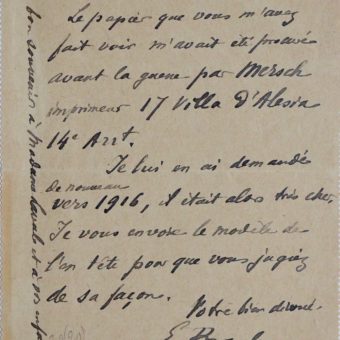 Le papier que vous m'avez
fait voir m'avait été procuré
avant la guerre par Mersch
imprimeur 17 Villa d'Alesia
14e Arrt.
Je lui en ai demandé
de nouveau
vers 1916, il était alors très cher.
Je vous envoie le modèle de
l'en tête pour que vous jugiez
de sa façon.
Votre bien dévoué
E
bon souvenir à Madame et à vos enfa